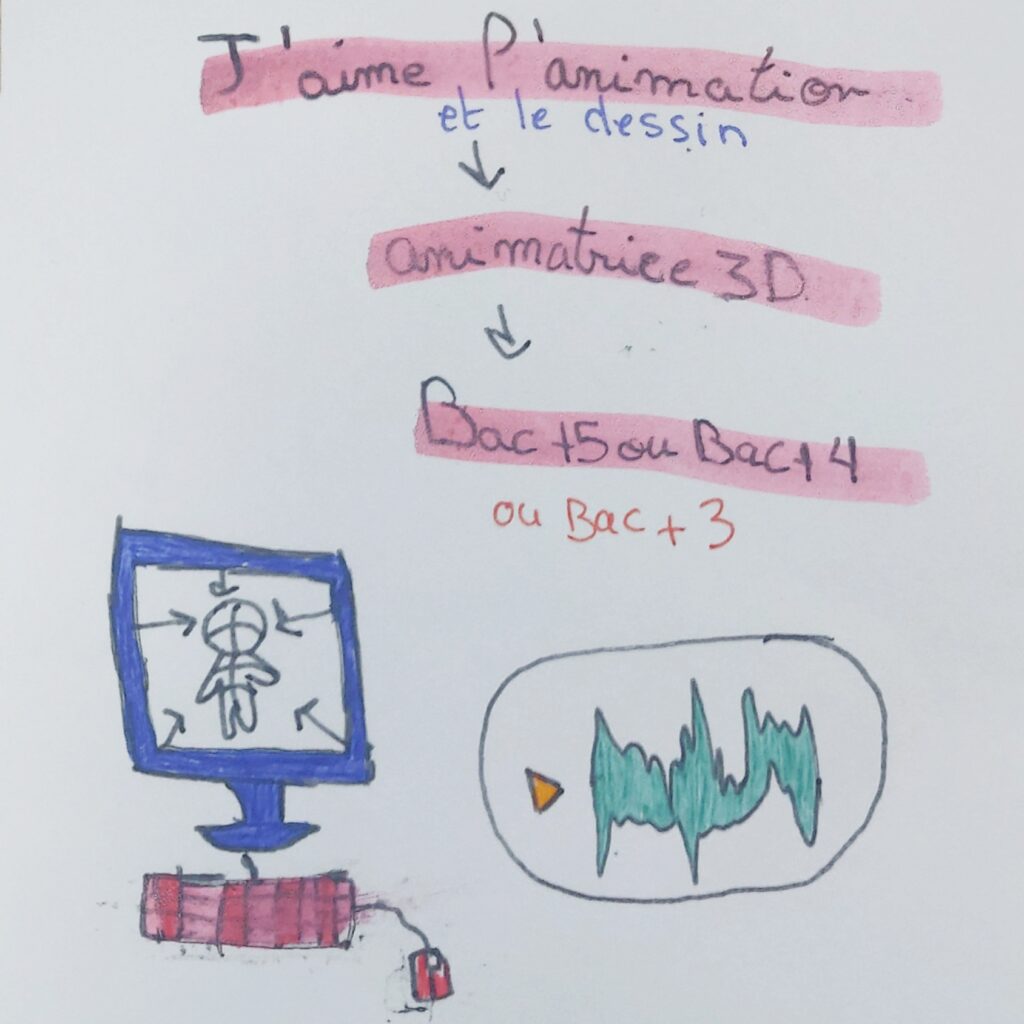 J'aime l'animation
et le dessin
animatrice 3D
Bac +5 ou Bac+4
ou Bac+3